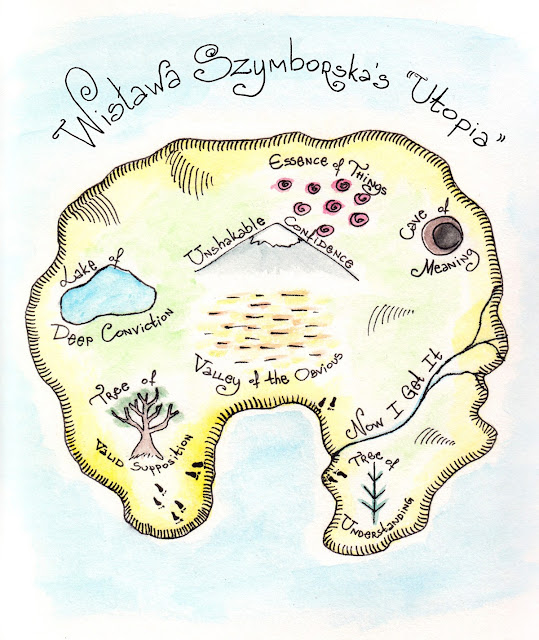 Wisława Szymborska's "Utopia"
Essence of Things
Unshakable Confidence
Cave of
Meaning
Lake of
Deep Conviction
Valley of the Obvious
Now I Get It
Tree of
Valid Supposition
Tree of
Understanding